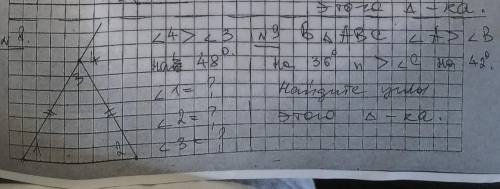 этого Δ-ка.
№8.
4
3
1
2
∠4 > ∠3
на 48°.
∠1 = ?
∠2 = ?
∠3 = ?
№9 В Δ ABC ∠A > ∠B
на 36° и > ∠C на 42°.
Найдите углы
этого Δ-ка.